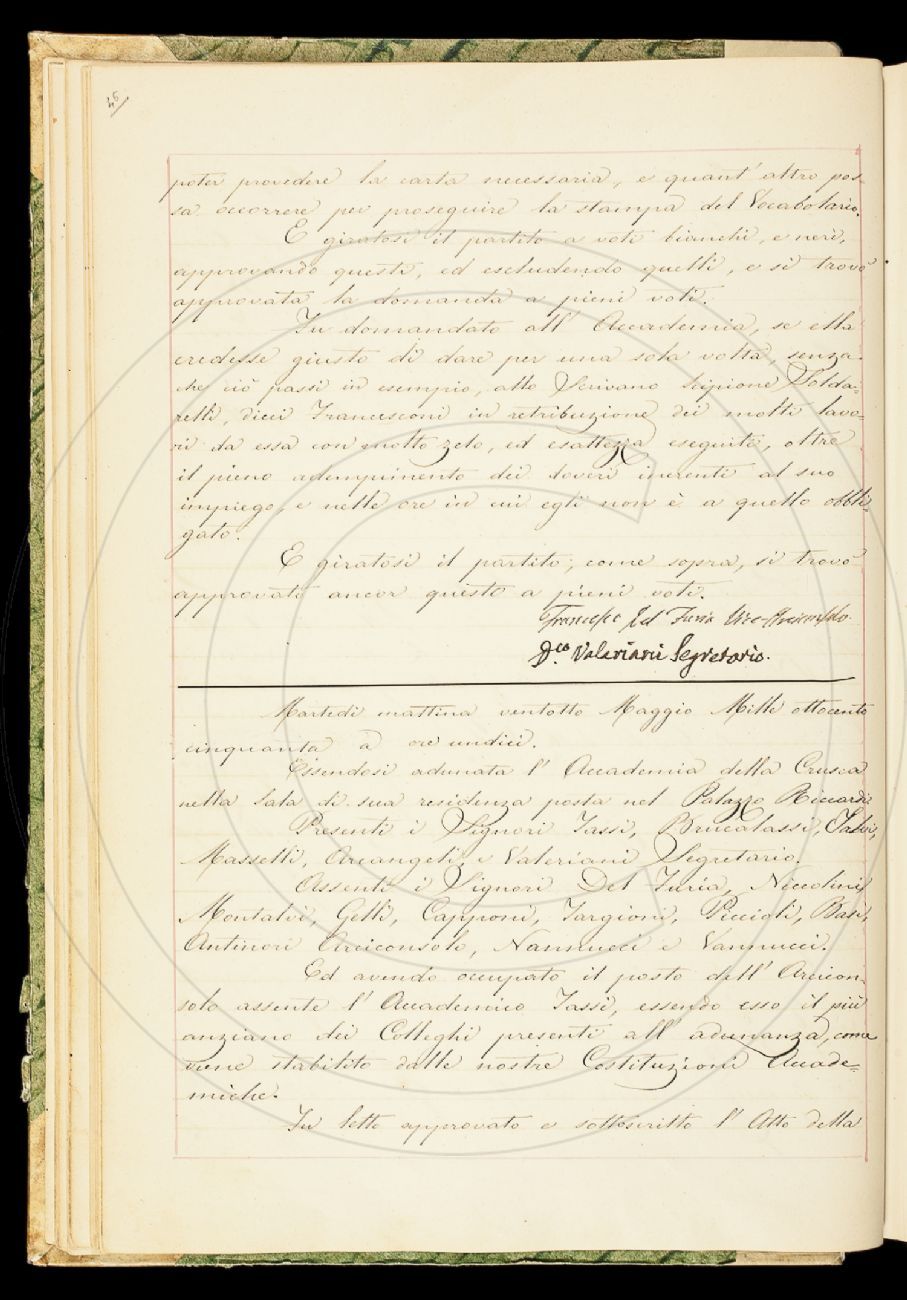 46/
poter provedere la carta necessaria, e quant' altro pos-
sa occorrere per proseguire la stampa del Vocabolario.
E giratosi il partito a voti bianchi, e neri,
approvando questi, ed escludendo quelli, e si trovò
approvata la domanda a pieni voti.
Fu domandato all' Accademia, se ella
credesse giusto di dare per una sola volta, senza
che ciò passi in esempio, allo Scrivano Scipione Solda-
relli, dieci Francesconi in retribuzione dei molti lavo-
ri da esso con molto zelo, ed esattezza eseguiti, oltre
il pieno adempimento dei doveri inerenti al suo
impiego, e nelle ore in cui egli non è a quello obbli-
gato.
E giratosi il partito, come sopra, si trovò
approvato ancor questo a pieni voti.
Francesco Del Furia Vice-Arciconsolo
D.co Valeriani Segretario.
Martedì mattina ventotto Maggio Mille ottocento
cinquanta a ore undici.
Essendosi adunata l' Accademia della Crusca
nella Sala di sua residenza posta nel Palazzo Riccardi
Presenti i Signori Tassi, Brucalassi, Salvi,
Masselli, Arcangeli, e Valeriani Segretario.
Assenti i Signori Del Furia, Niccolini,
Montalvi, Gelli, Capponi, Targioni, Piccioli, Basi,
Antinori Arciconsolo, Nannucci e Vannucci.
Ed avendo occupato il posto dell' Arcicon-
solo assente l' Accademico Tassi, essendo esso il più
anziano dei Colleghi presenti all' adunanza, come
viene stabilito dalle nostre Costituzioni Accade-
miche.
Fu letto approvato e sottoscritto l' Atto della